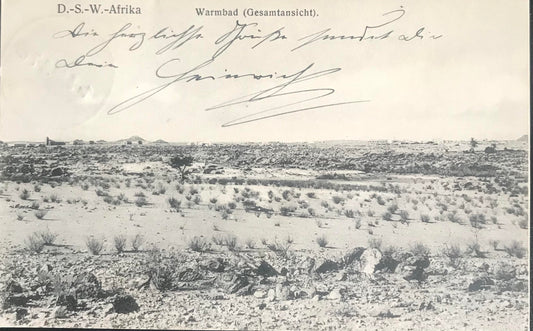 D.-S.-W.-Afrika
Warmbad (Gesamtansicht).
Die herzlichste Grüße sendet Dir
Dein Heinrich